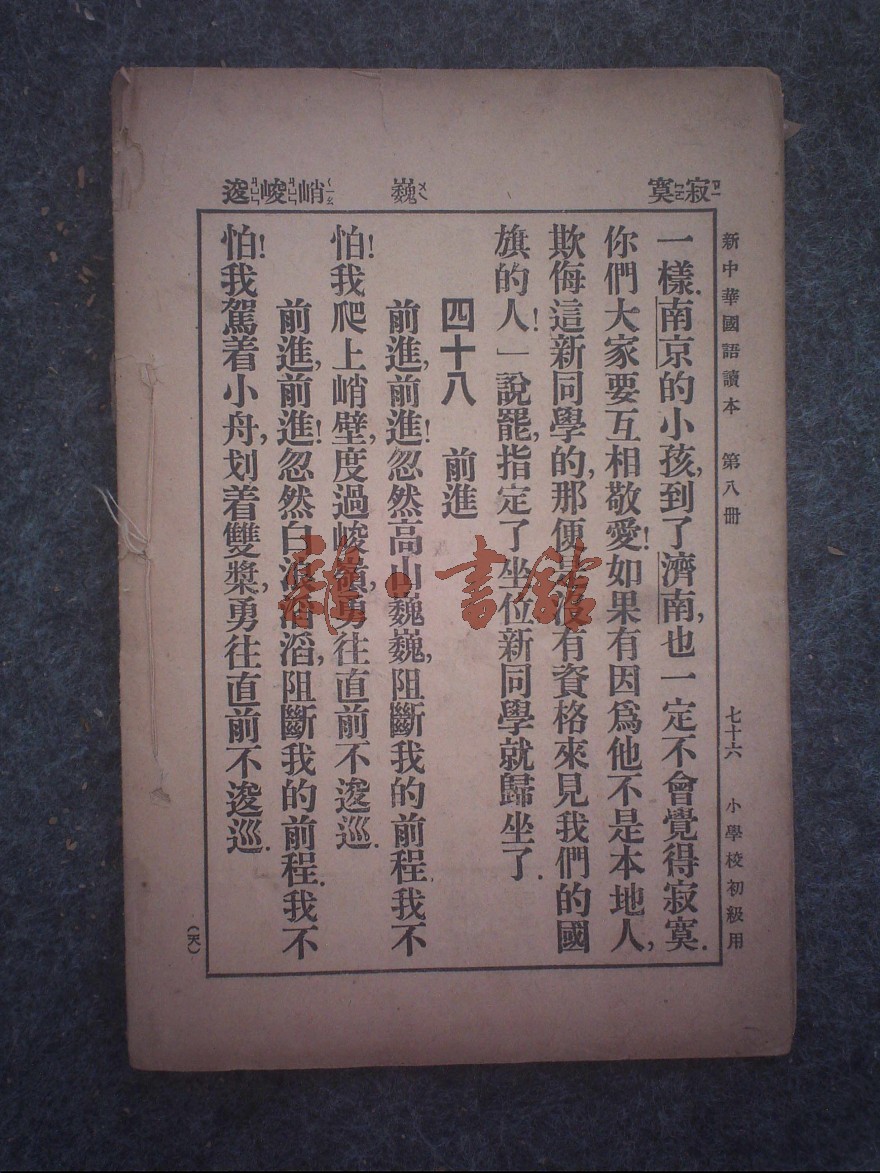 新中華國語讀本 第八冊 七十六 小學校初級用
寂ㄐㄧ寞ㄇㄛ
巍ㄨㄟ
峭ㄑㄧㄠ峻ㄐㄩㄣ逡ㄐㄩㄣ
一樣.南京的小孩,到了濟南,也一定不會覺得寂寞.
你們大家要互相敬愛!如果有因爲他不是本地人,
欺侮這新同學的,那便是沒有資格來見我們的國
旗的人!」說罷,指定了坐位新同學就歸坐了.
四十八 前進
前進,前進!忽然高山巍巍,阻斷我的前程.我不
怕!我爬上峭壁,度過峻嶺,勇往直前不逡巡.
前進,前進!忽然白浪滔滔,阻斷我的前程.我不
怕!我駕着小舟,划着雙槳,勇往直前不逡巡.
雜·書館